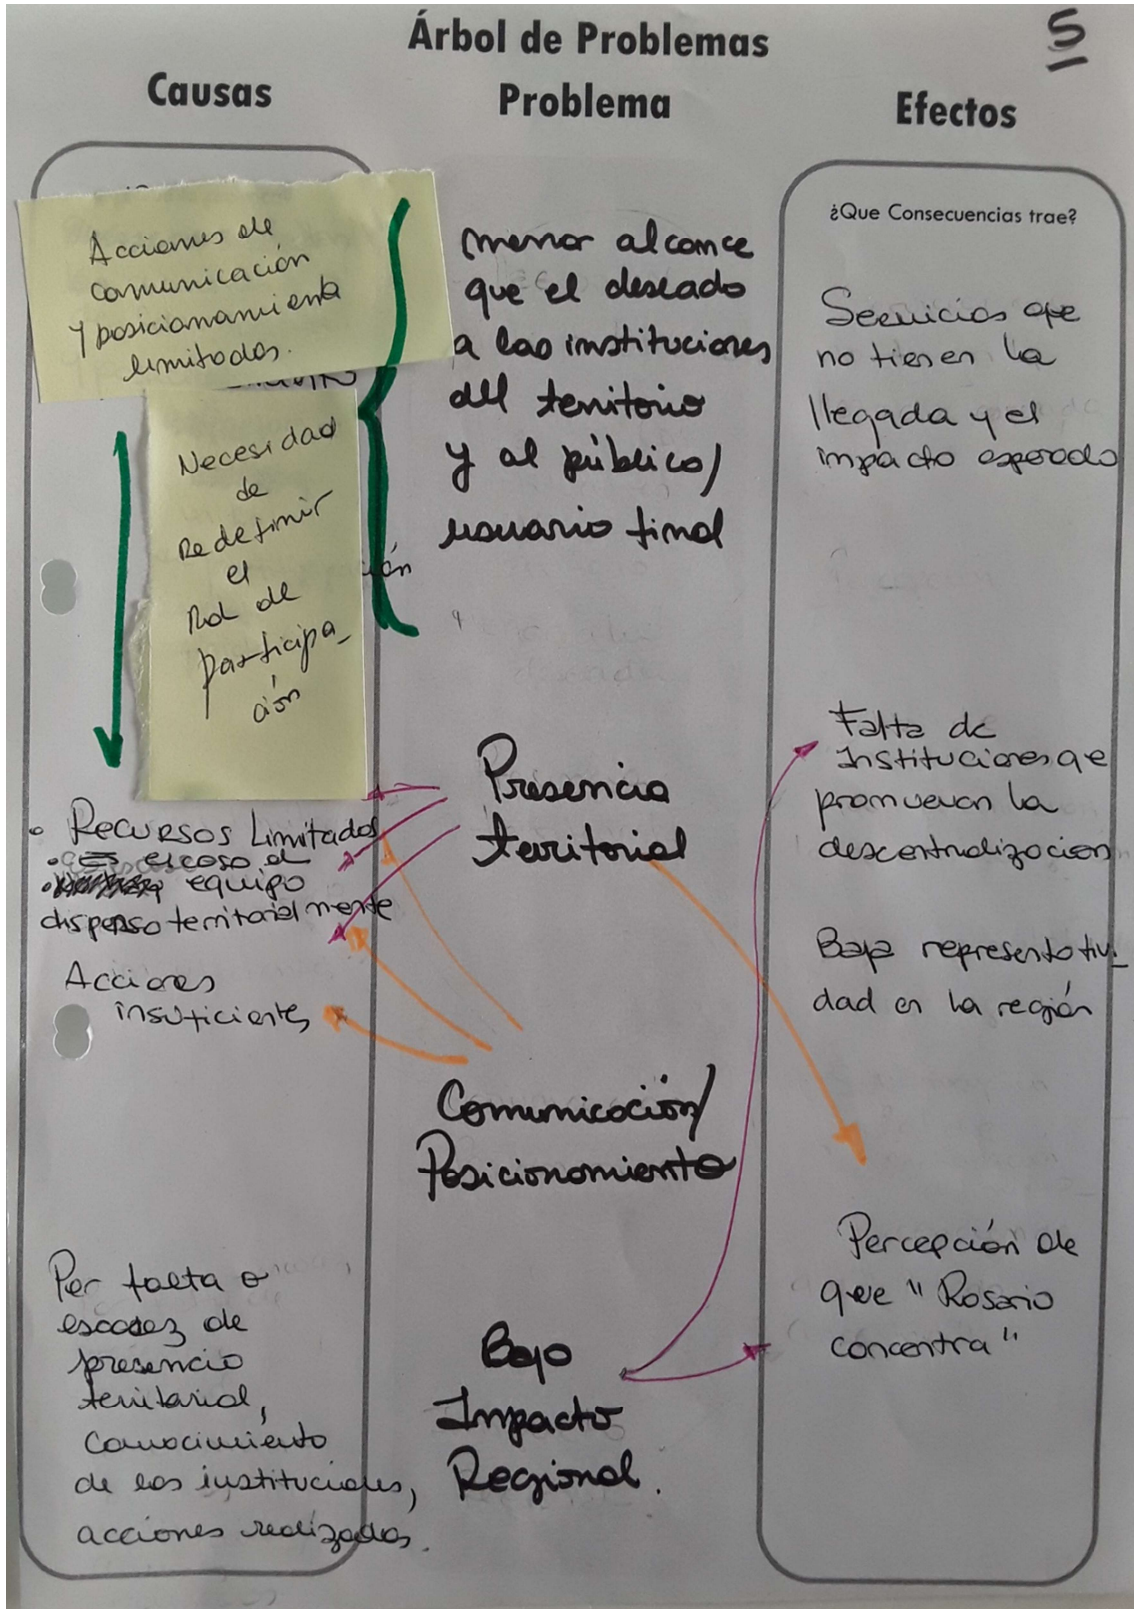 Árbol de Problemas
5
Causas
Problema
Efectos
Acciones de
comunicación
y posicionamiento
limitados.
Necesidad
de
Redefinir
el
Rol de
participa_
ción
ión
• Recursos Limitados
• escaso el
• equipo
disperso territorialmente
Acciones
insuficientes
Por falta o
escasez de
presencia
territorial,
conocimiento
de las instituciones,
acciones realizadas.
menor alcance
que el deseado
a las instituciones
del territorio
y al público/
usuario final
Presencia
territorial
Comunicación/
Posicionamiento
Bajo
Impacto
Regional.
¿Que Consecuencias trae?
Servicios que
no tienen la
llegada y el
impacto esperado
Falta de
Instituciones qe
promuevan la
descentralizacion
Baja representativi_
dad en la región
Percepción de
que "Rosario
concentra"